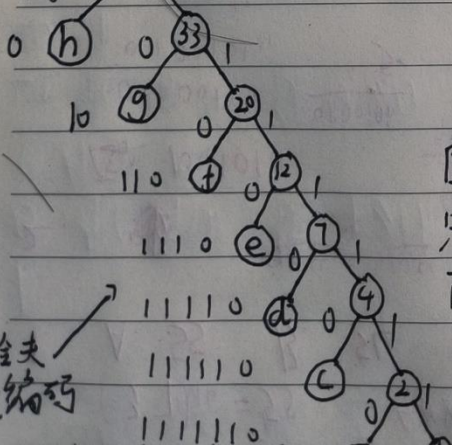 0 h 0 33 1
10 g 20
0 1
110 f 0 12 1
1110 e 0 7 1
11110 d 0 4 1
111110 c 2
0 1
编码
1111110